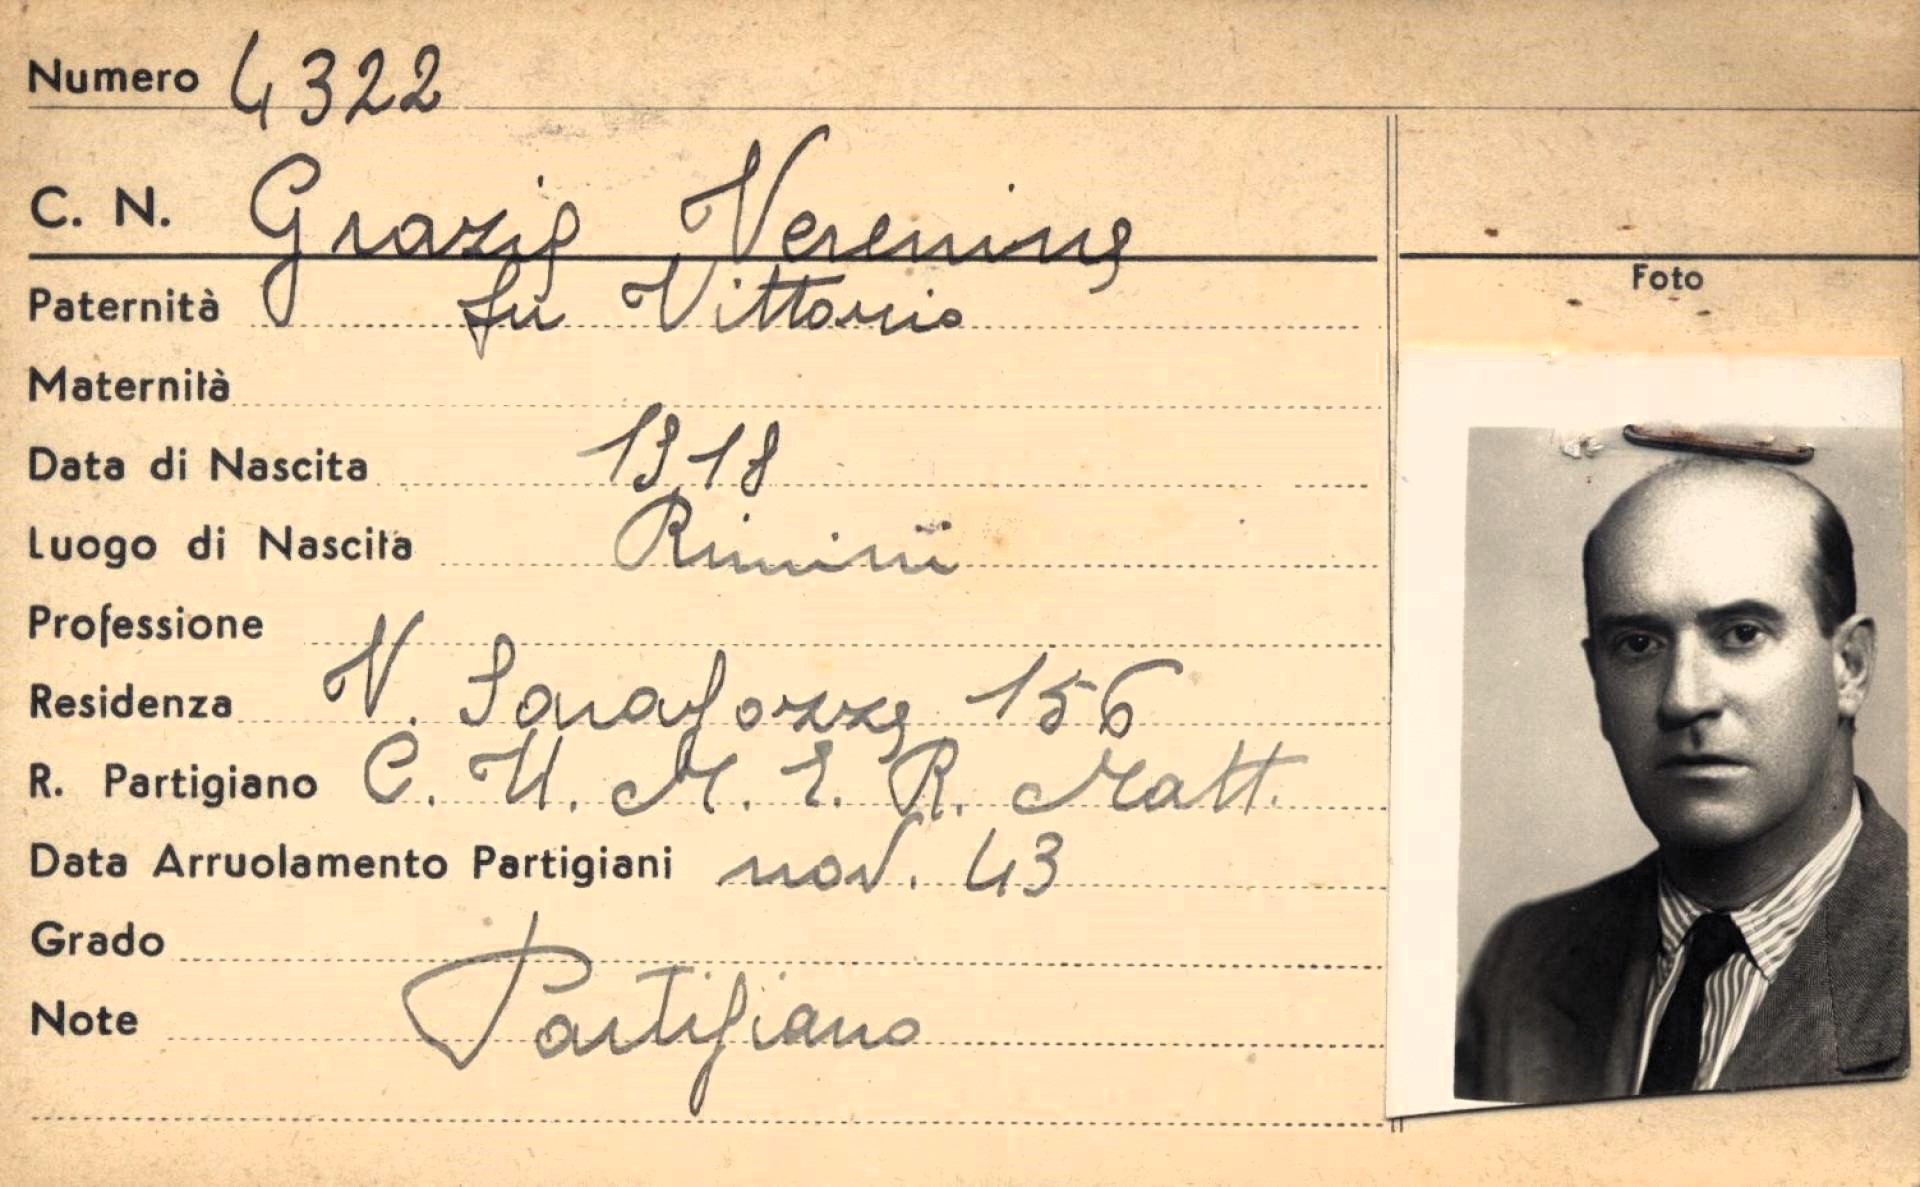 Numero 4322
C. N. Grazia Verenina
Paternità fu Vittorio
Foto
Maternità
Data di Nascita 1918
Luogo di Nascita Rimini
Professione
Residenza V. Saragozza 156
R. Partigiano C. U. M. E. R. Matt.
Data Arruolamento Partigiani nov. 43
Grado
Note Partigiano